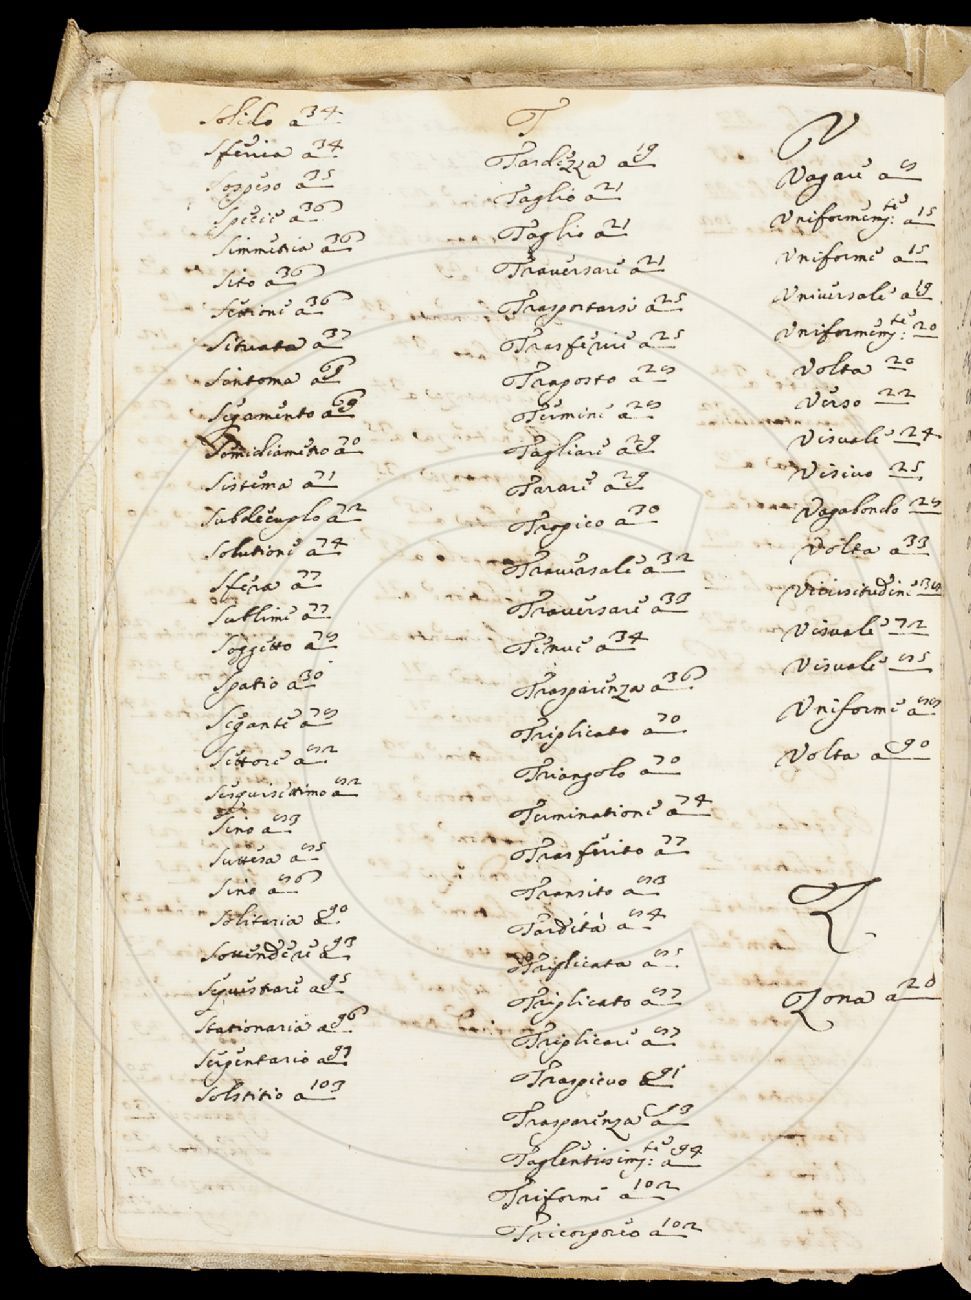 Solido a 34
Sferica a 34
Sospeso a 35
Specie a 36
Simmetria a 36
Sito a 36
Settione a 36
Situata a 37
Sintoma a 69
Segamento a 69
Semidiametro a 70
Sistema a 71
Subdecuplo a 72
Solutione a 74
Sfera a 77
Sublime a 77
Soggetto a 78
Spatio a 30
Segante a 78
Settore a 82
Sesquisettimo a 82
Sino a 83
Suttesa a 85
Sino a 86
Solitaria a 90
Sottendere a 93
Sequestrare a 95
Stationaria a 96
Serpentario a 97
Solstitio a 103
T
Tardezza a 19
Taglio a 21
Taglio a 21
Traversare a 21
Trasportarsi a 25
Trasferire a 25
Traposto a 28
Termine a 28
Tagliare a 29
Tarare a 29
Tropico a 30
Traversale a 32
Traversare a 33
Tenue a 34
Trasparenza a 36
Triplicato a 70
Triangolo a 70
Terminatione a 74
Trasferito 77
Transito a 83
Tardità a 84
Triplicata a 85
Triplicato a 87
Triplicare a 87
Traspicuo a 91
Trasparenza a 93
Taglentissimte: a 94
Triforme a 102
Tricorporeo a 102
V
Vagare a 8
Uniformemte: a 15
Uniforme a 15
Universale a 19
Uniformemte: 20
Volta 20
Verso 22
Visuale 24
Visivo 25
Vagabondo 28
Volta a 33
Vicissitudine 38
Visuale 72
Visuale 85
Uniforme a 88
Volta a 90
Z
Zona a 28